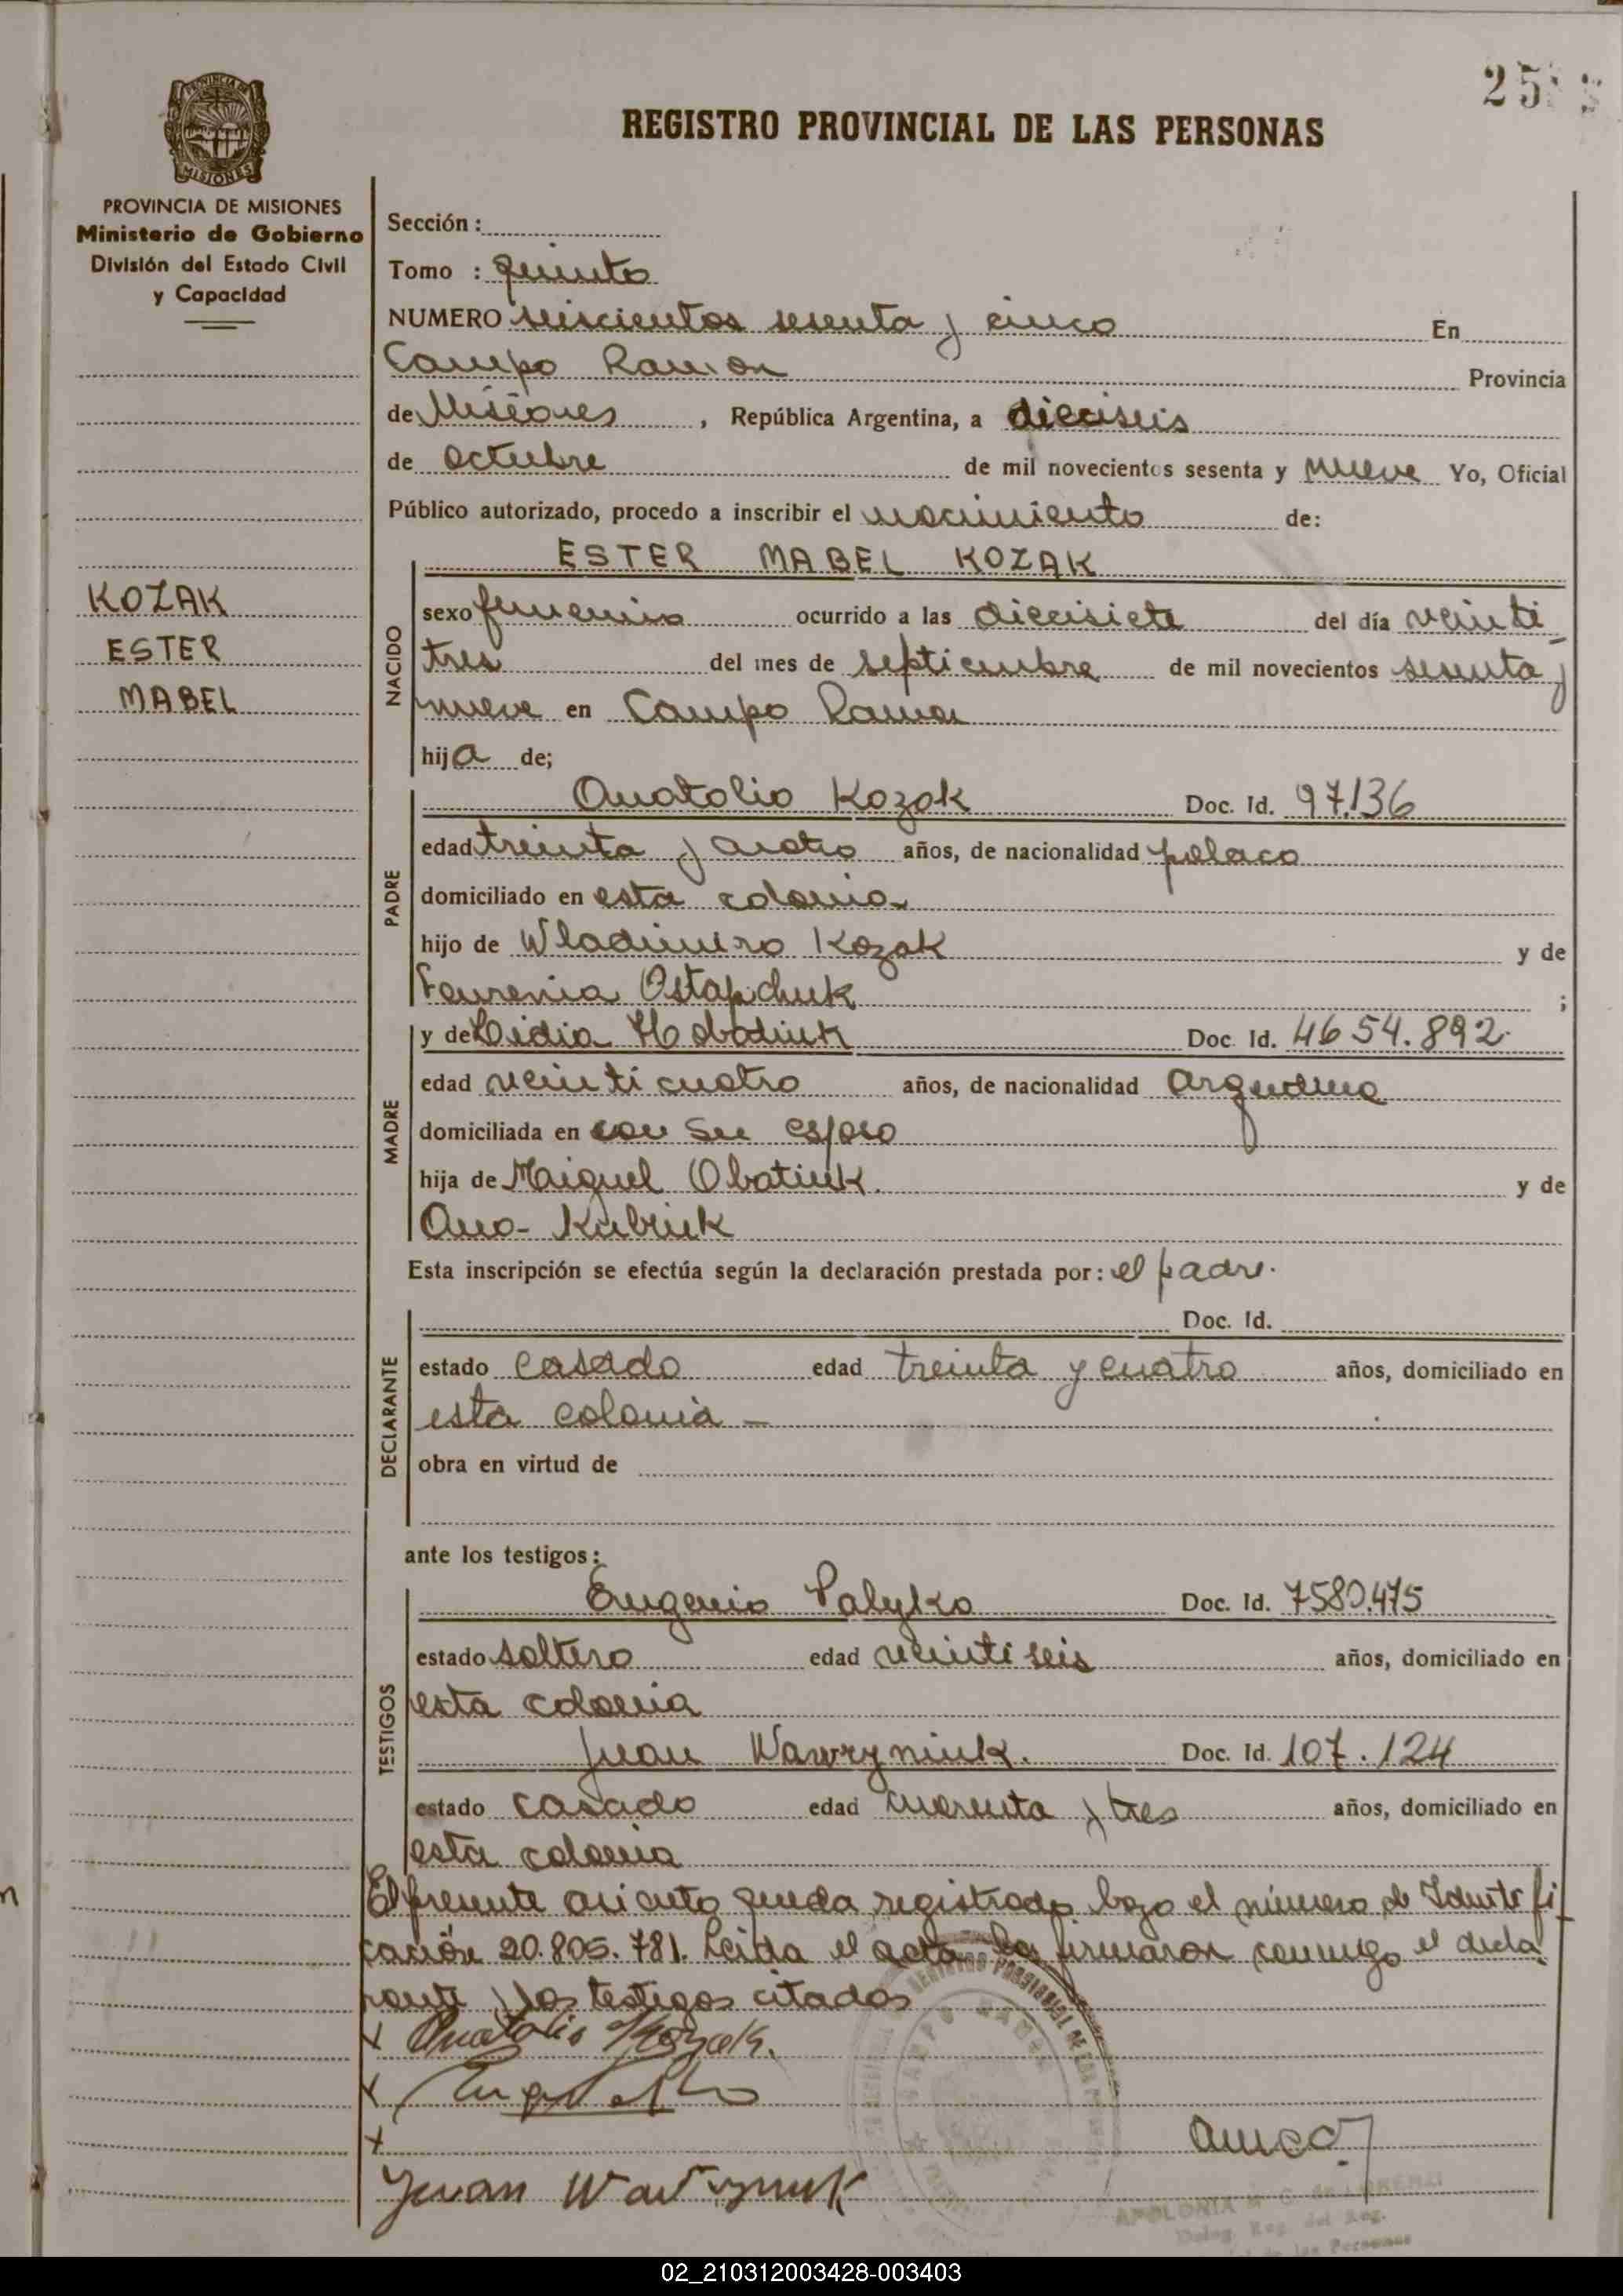 25
REGISTRO PROVINCIAL DE LAS PERSONAS
PROVINCIA DE MISIONES
Ministerio de Gobierno
División del Estado Civil
y Capacidad
Sección :
Tomo : quinto
NUMERO seiscientos sesenta y cinco En
Campo Ramon Provincia
de Misiones , República Argentina, a dieciseis
de octubre de mil novecientos sesenta y nueve Yo, Oficial
Público autorizado, procedo a inscribir el nacimiento de:
ESTER MABEL KOZAK
KOZAK
ESTER
MABEL
NACIDO
sexo femenino ocurrido a las diecisiete del día veinti
tres del mes de septiembre de mil novecientos sesenta y
nueve en Campo Ramon
hija de;
PADRE
Anatolio Kozak Doc. Id. 97.136
edad treinta y cuatro años, de nacionalidad polaco
domiciliado en esta colonia
hijo de Wladimiro Kozak y de
Ostapchuk ;
MADRE
y de Lidia Hobatiuk Doc. Id. 4654.892
edad veinti cuatro años, de nacionalidad argentina
domiciliada en con su esposo
hija de Maiguel Obatiuk. y de
Ana Kubiuk
Esta inscripción se efectúa según la declaración prestada por: el padre.
DECLARANTE
Doc. Id.
estado casado edad treinta y cuatro años, domiciliado en
esta colonia -
obra en virtud de
ante los testigos:
TESTIGOS
Eugenio Palyko Doc. Id. 7580.475
estado soltero edad veinti seis años, domiciliado en
esta colonia
Juan Wawryniuk. Doc. Id. 107.124
estado casado edad cuarenta y tres años, domiciliado en
esta colonia
El presente asi cuto queda registrado bajo el número de Identifi
cación 20.805.781. Leida el acta la firmaron conmigo el decla
rante y los testigos citados
x Anatolio Kozak.
x
x
Juan Wawrynuk
REGISTRO PROVINCIAL DE LAS PERSONAS
CAMPO RAMON
APOLONIA M. C. de LORENZI
Deleg. Reg. del Reg.
de las Personas
02_210312003428-003403